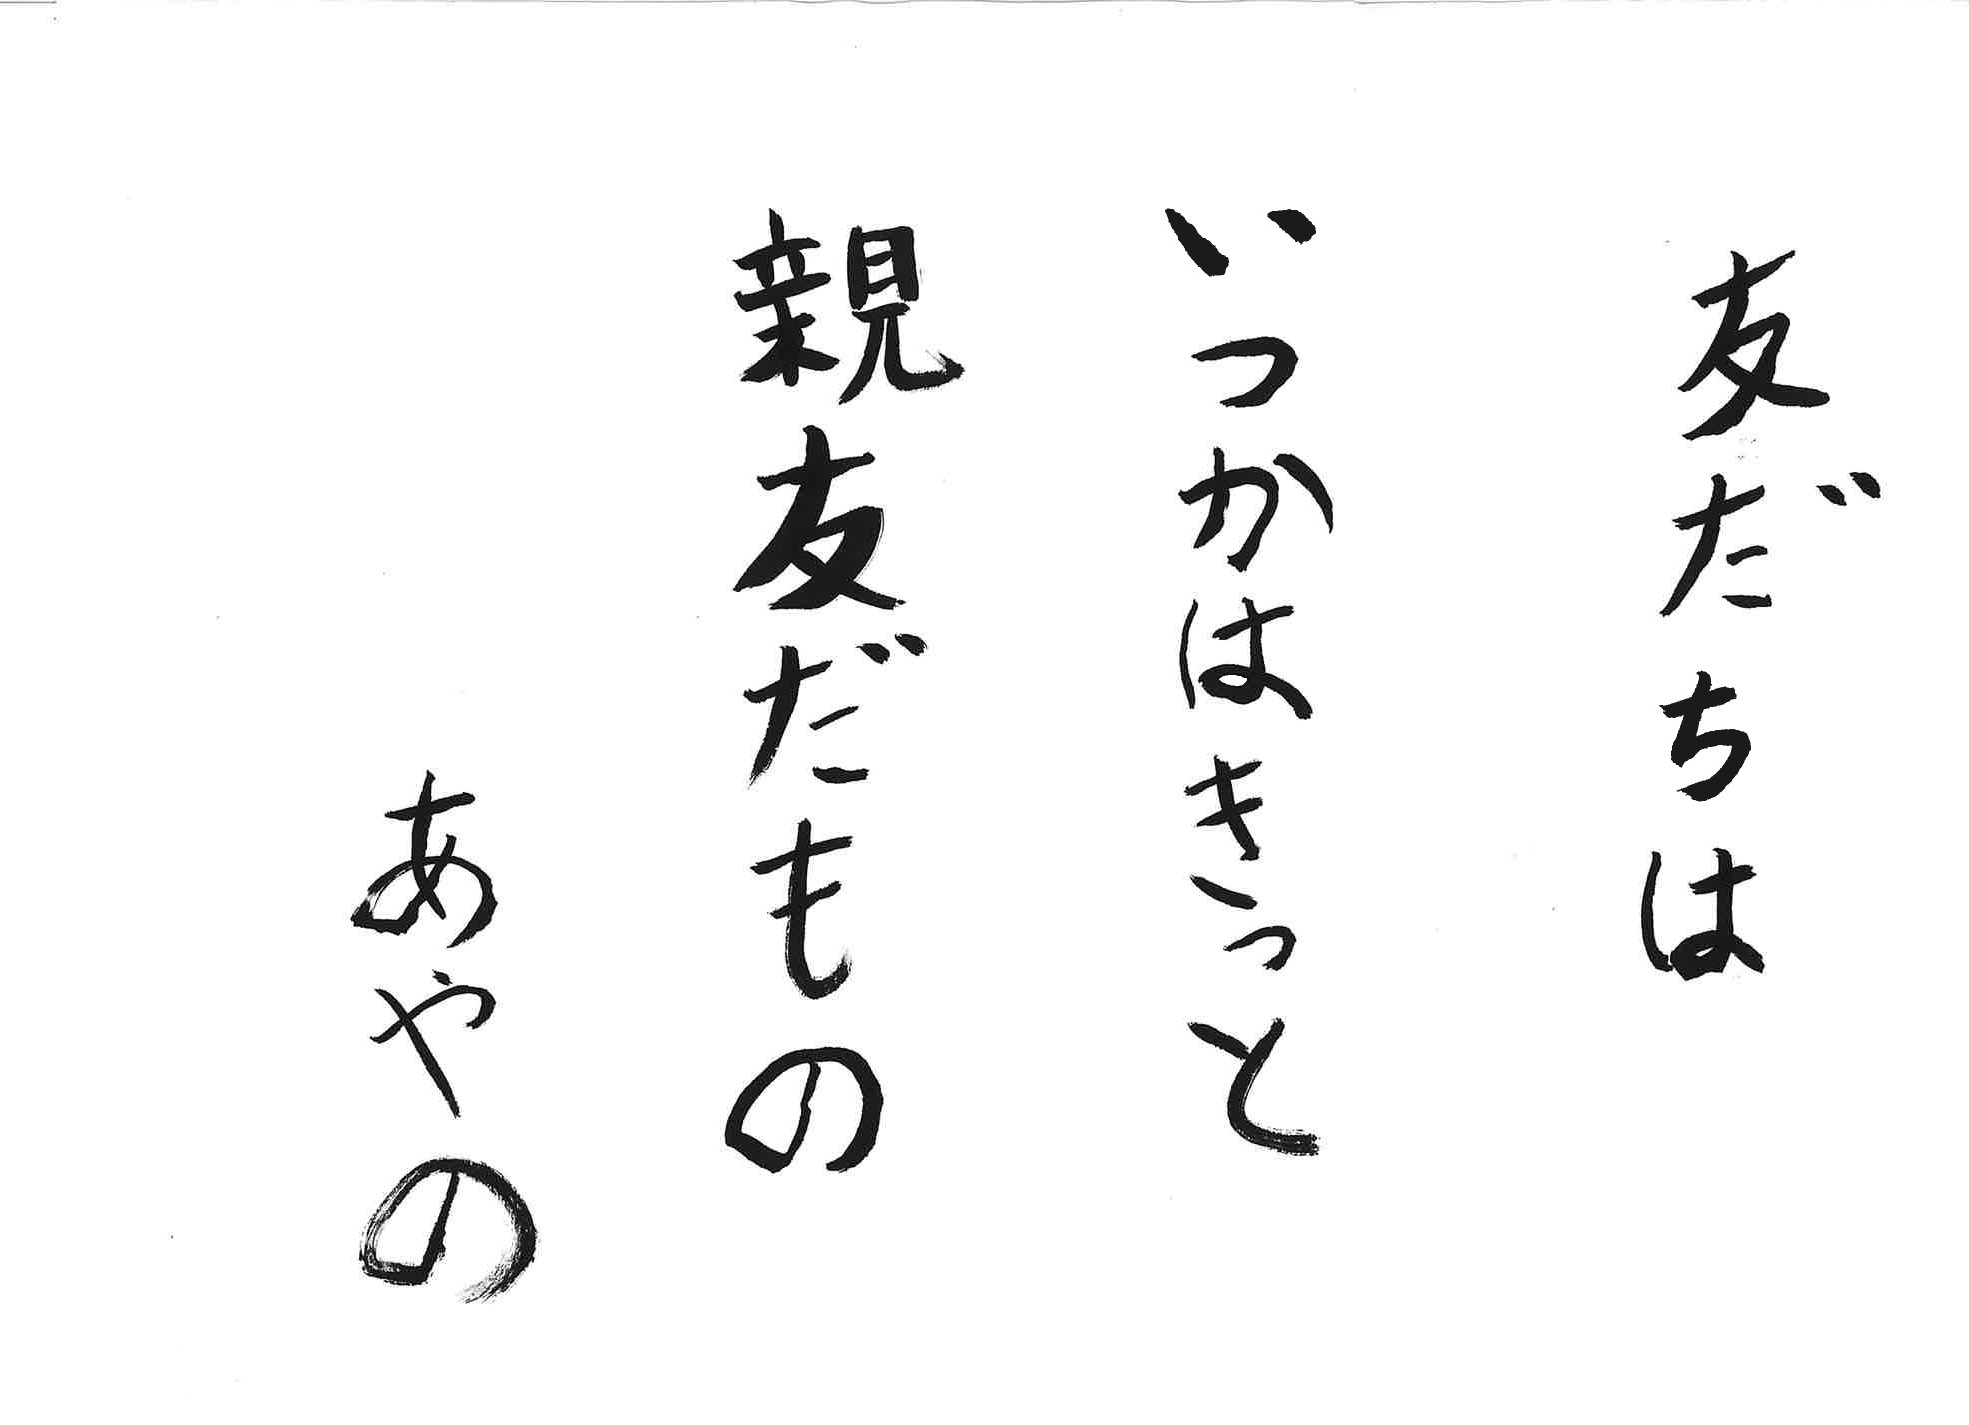 友だちは
いつかはきっと
親友だもの
あやの